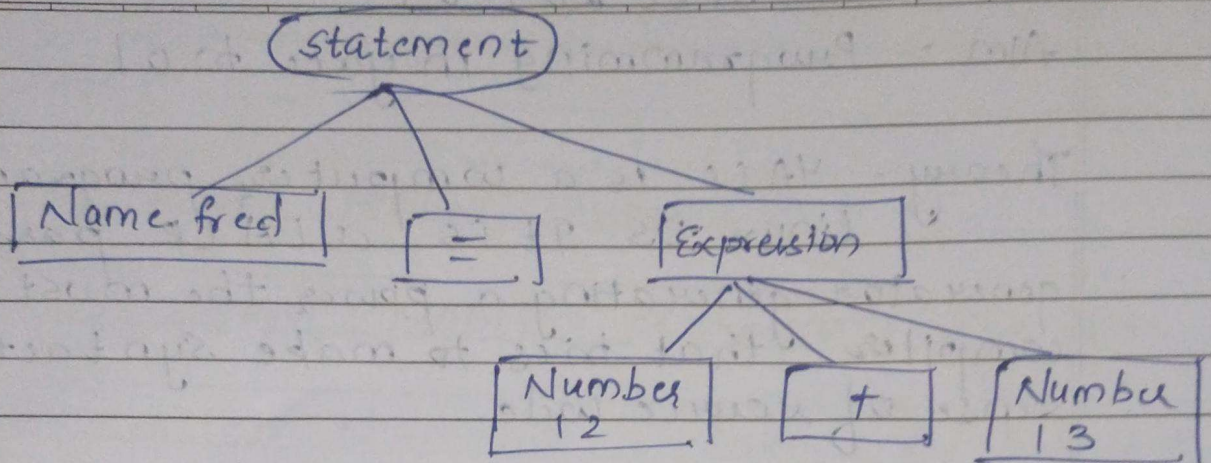 statement
Name fred
=
Expreision
Number
12
+
Number
13